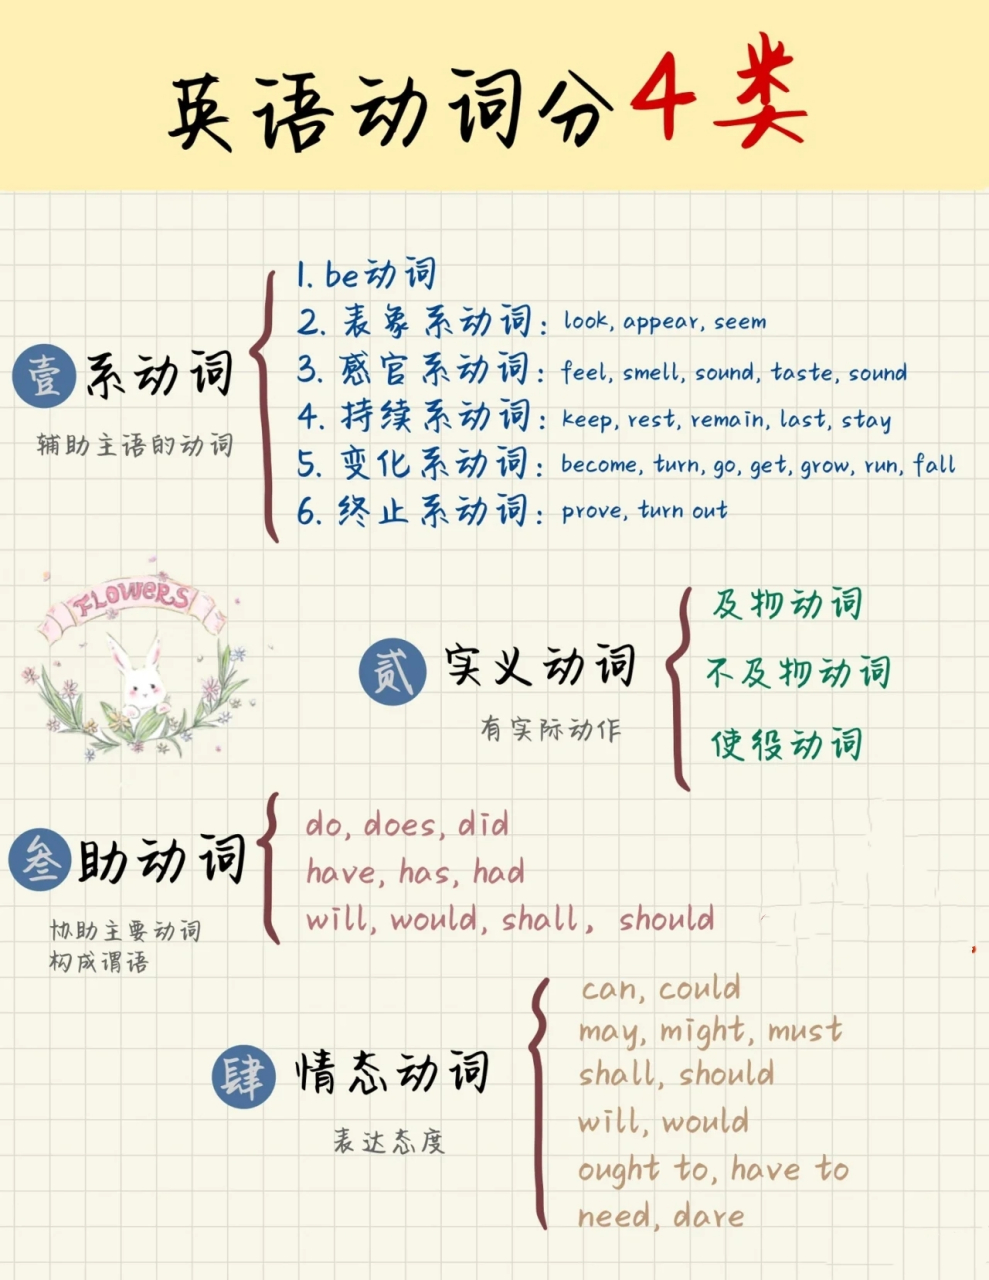 英语动词分4类
壹 系动词
辅助主语的动词
1. be动词
2. 表象系动词: look, appear, seem
3. 感官系动词: feel, smell, sound, taste, sound
4. 持续系动词: keep, rest, remain, last, stay
5. 变化系动词: become, turn, go, get, grow, run, fall
6. 终止系动词: prove, turn out
FLOWERS
贰 实义动词
有实际动作
及物动词
不及物动词
使役动词
叁 助动词
协助主要动词
构成谓语
do, does, did
have, has, had
will, would, shall, should
肆 情态动词
表达态度
can, could
may, might, must
shall, should
will, would
ought to, have to
need, dare